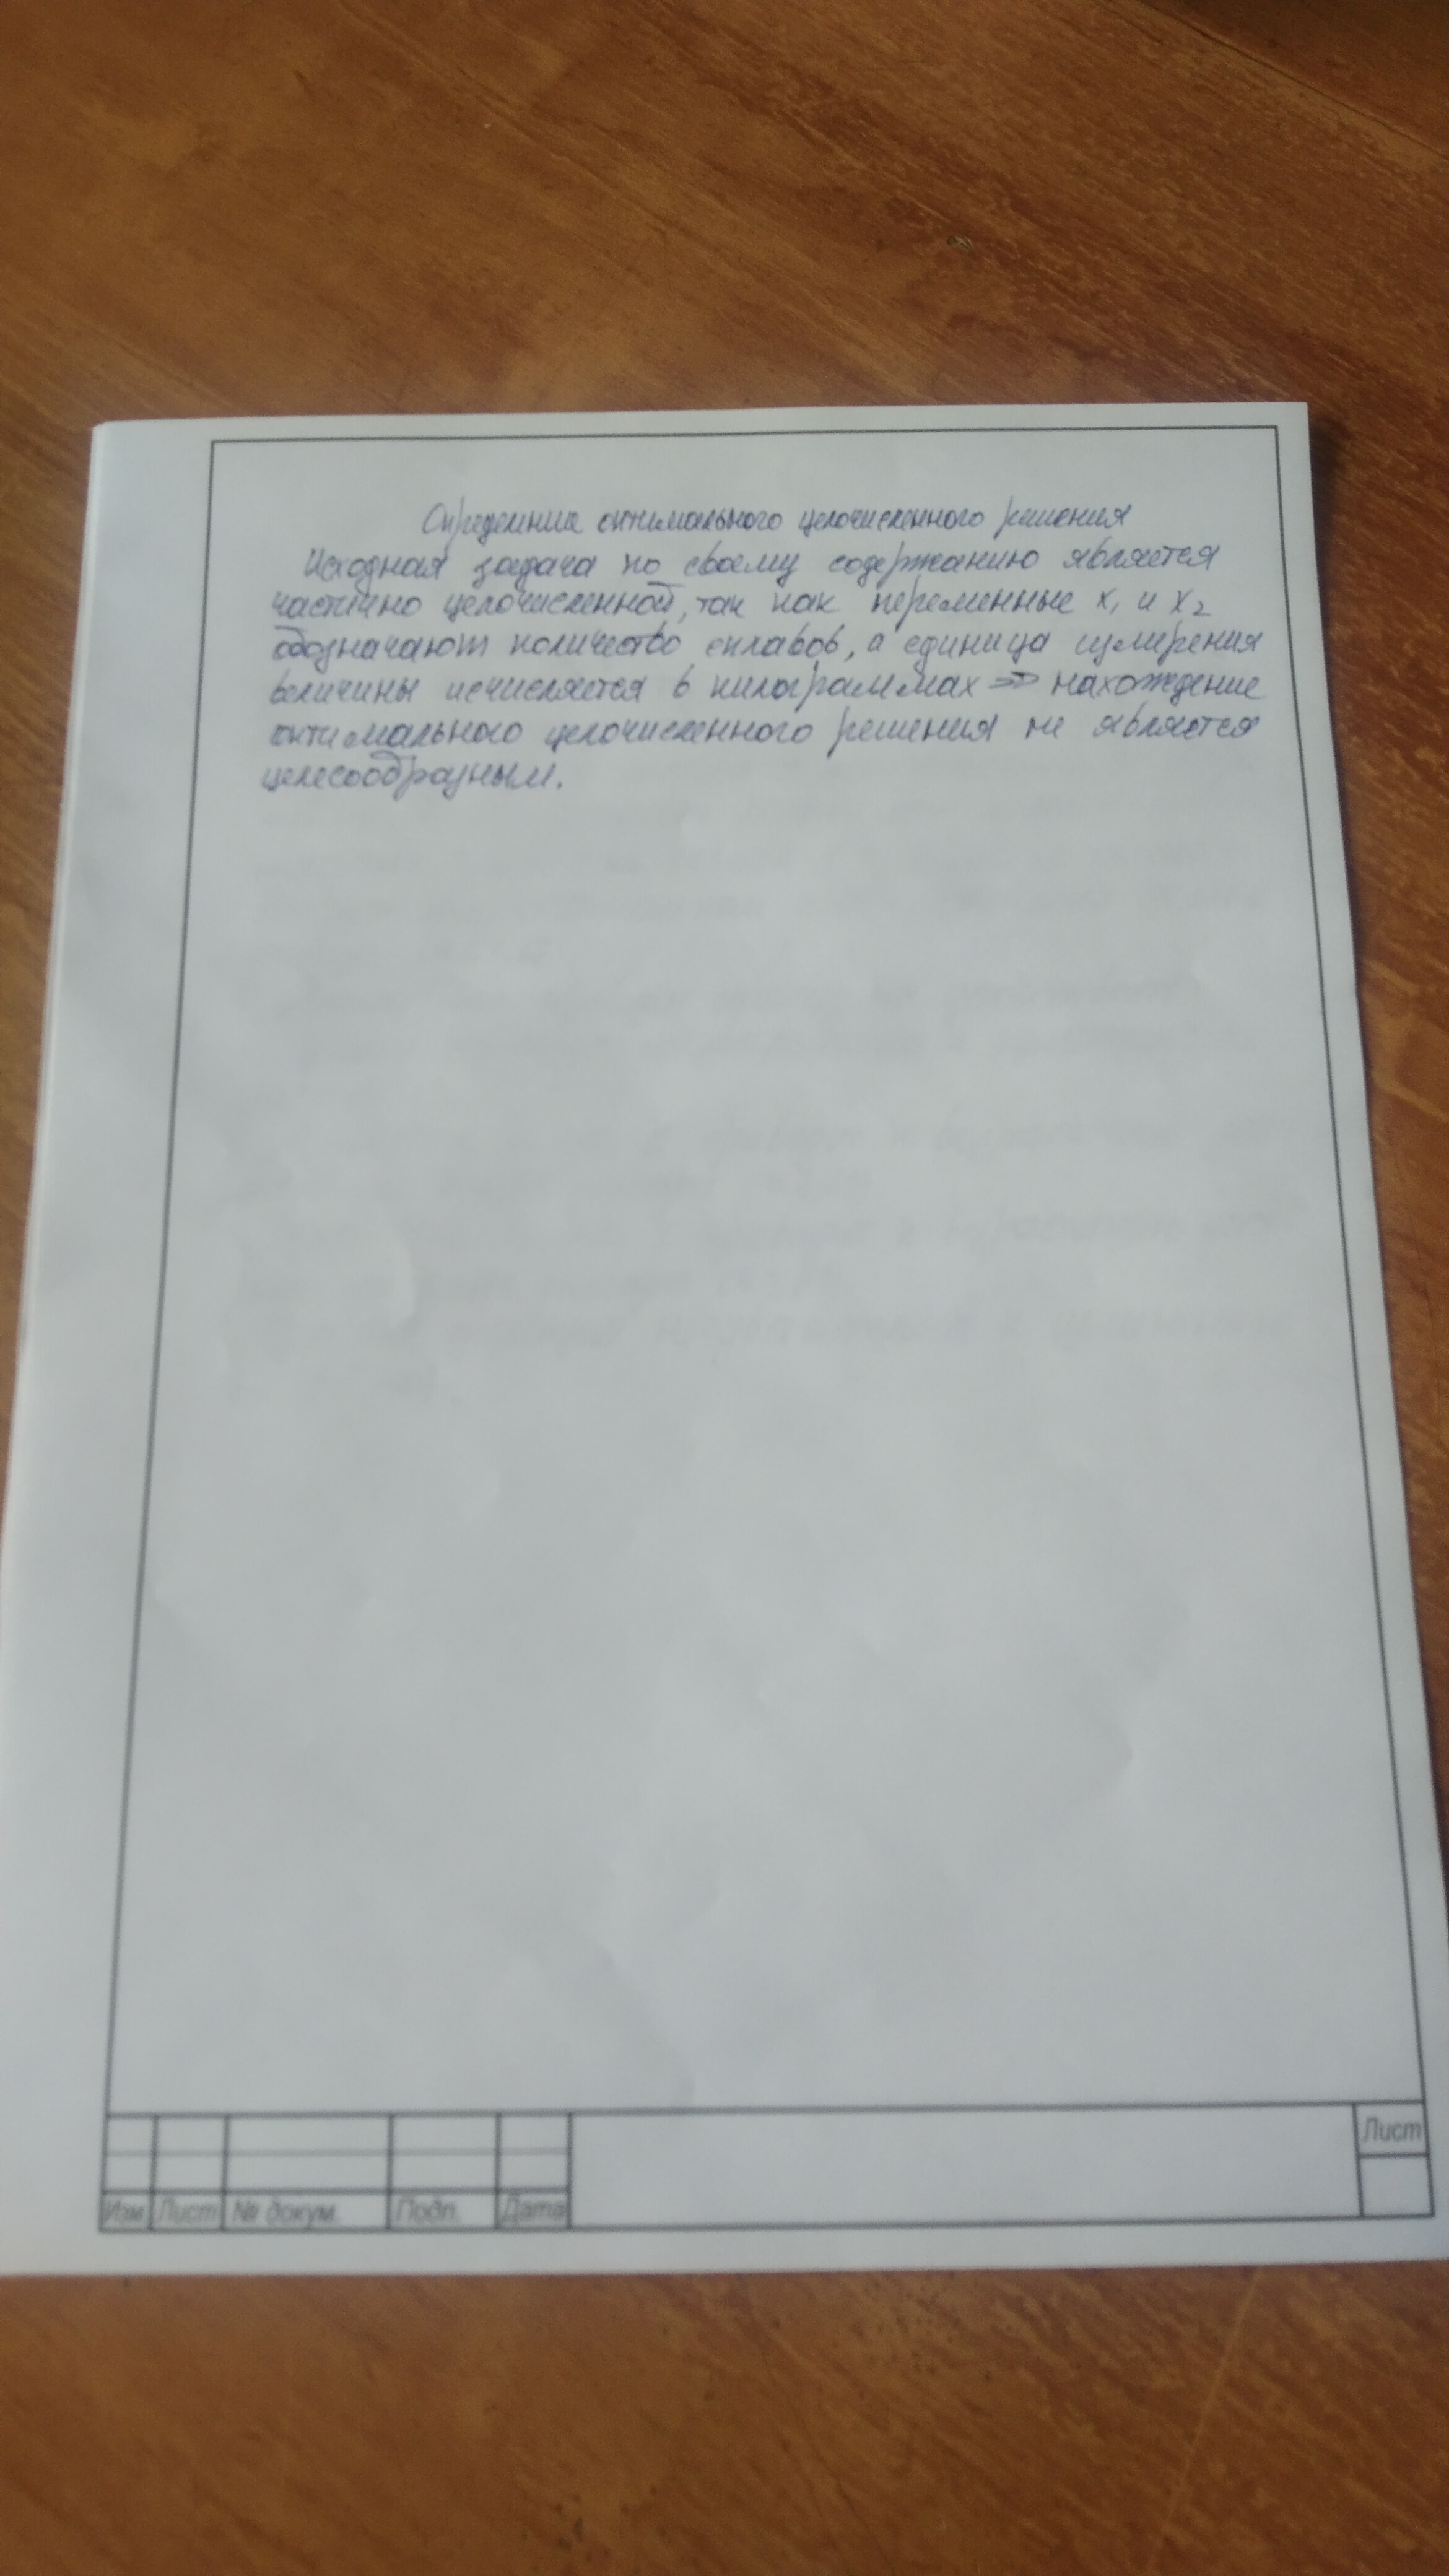 Определение оптимального целочисленного решения
Исходная задача по своему содержанию является
частично целочисленной, так как переменные x₁ и x₂
обозначают количество сплавов, а единица измерения
величины исчисляется в килограммах => нахождение
оптимального целочисленного решения не является
целесообразным.
Лист
Изм Лист № докум. Подп. Дата